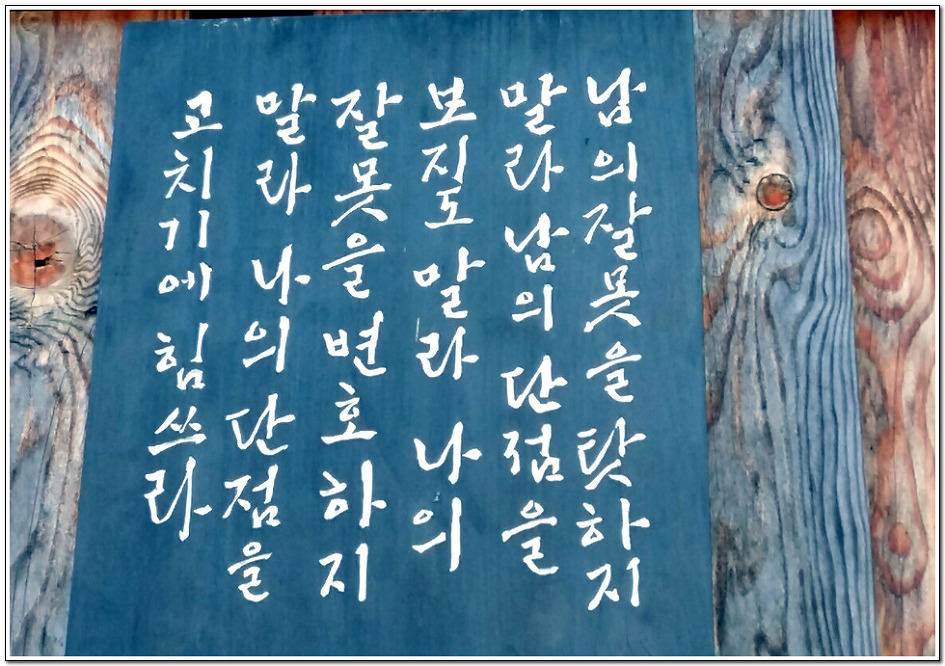 남의잘못을탓하지
말라 남의 단점을
보지도 말라 나의
잘못을 변호하지
말라 나의 단점을
고치기에 힘쓰라